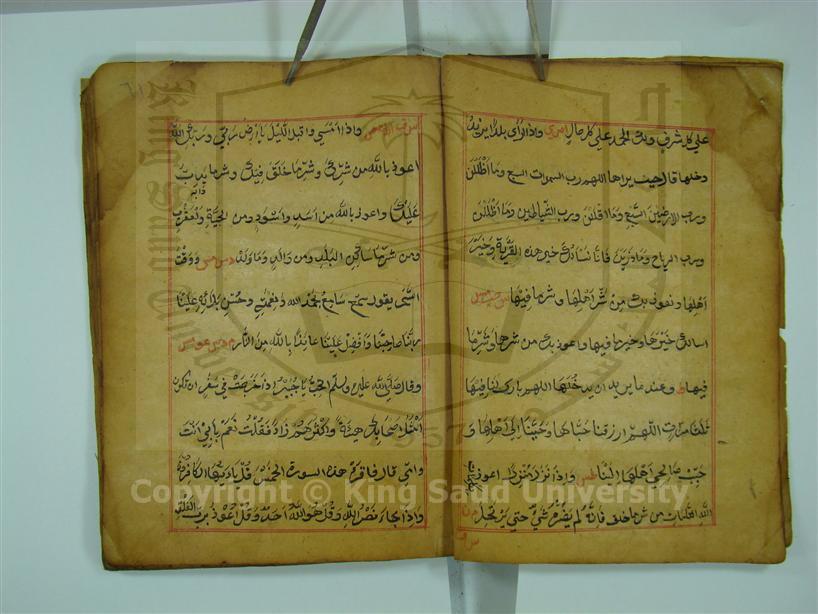 علي كل شرف ولك الحمد علي كل حال اس ي واذا راي بلدا يريد
دخلها قال حين يراها اللهم رب السموات السبع وما اظللن
ورب الارضين السبع وما اقللن ورب الشياطين وما اظللن
ورب الرياح وما ذرين فانا نسالك خير هذه القرية وخير
اهلها ونعوذ بك من شر اهلها وشر ما فيها
اسالك خيرها وخير ما فيها واعوذ بك من شرها وشر ما
فيها ط وعند ما يريد ان يدخلها اللهم بارك لنا فيها
ثلث مرات اللهم ارزقنا جناها وحببنا الي اهلها و
حبب صالحي اهلها الينا طس واذا نزل منزلا اعوذ بكلمات
الله التامات من شر ما خلق فانه لم يضره شي حتي يرتحل
٦١
واذا امسي واقبل الليل يا ارض ربي وربك الله
اعوذ بالله من شرك وشر ما خلق فيك وشر ما يدب
عليك واعوذ بالله من اسد واسود ومن الحية والعقرب
ومن شر ساكن البلد ومن والد وما ولد د س مس ووقت
السحر يقول سمع سامع بحمد الله ونعمته وحسن بلائه علينا
ربنا صاحبنا وافضل علينا عائذا بالله من النار م د س عو مس
وقال صلي الله عليه وسلم اتحب يا جبير اذا خرجت في سفر ان تكون
امثل اصحابك هيئة واكثرهم زادا فقلت نعم بابي انت
وامي قال فاقرا هذه السور الخمس قل يا ايها الكافرون
واذا جاء نصر الله وقل هو الله احد وقل اعوذ برب الفلق
Copyright © King Saud University